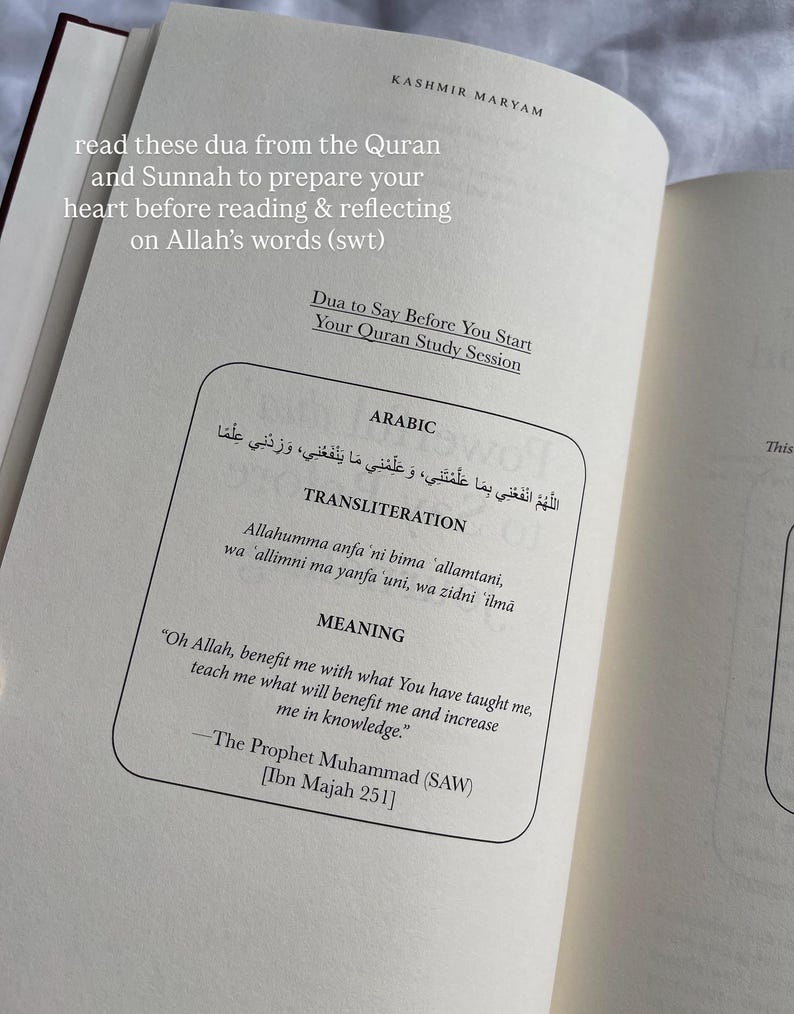 KASHMIR MARYAM
read these dua from the Quran
and Sunnah to prepare your
heart before reading & reflecting
on Allah's words (swt)
Dua to Say Before You Start
Your Quran Study Session
ARABIC
اللَّهُمَّ انْفَعْنِي بِمَا عَلَّمْتَنِي، وَعَلِّمْنِي مَا يَنْفَعُنِي، وَزِدْنِي عِلْمًا
TRANSLITERATION
Allahumma anfa ʿni bima ʿallamtani,
wa ʿallimni ma yanfa ʿuni, wa zidni ʿilmā
MEANING
“Oh Allah, benefit me with what You have taught me,
teach me what will benefit me and increase
me in knowledge.”
—The Prophet Muhammad (SAW)
[Ibn Majah 251]
This